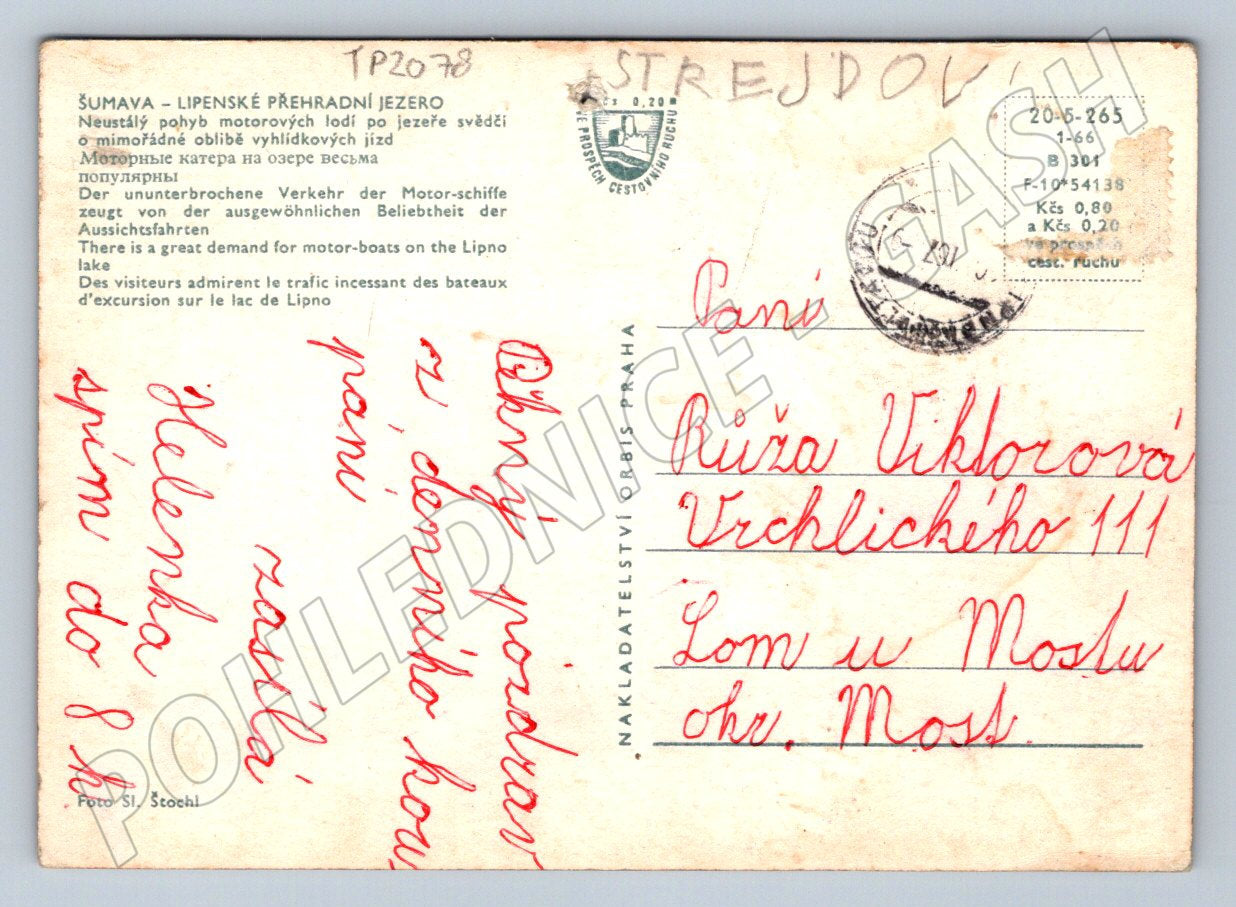 TP2078
STREJDOV
ŠUMAVA – LIPENSKÉ PŘEHRADNÍ JEZERO
Neustálý pohyb motorových lodí po jezeře svědčí
o mimořádné oblibě vyhlídkových jízd
Моторные катера на озере весьма
популярны
Der ununterbrochene Verkehr der Motor-schiffe
zeugt von der ausgewöhnlichen Beliebtheit der
Aussichtsfahrten
There is a great demand for motor-boats on the Lipno
lake
Des visiteurs admirent le trafic incessant des bateaux
d'excursion sur le lac de Lipno
Kčs 0,20
VE PROSPĚCH CESTOVNÍHO RUCHU
20-5-265
1-66
B 301
F-10*54138
Kčs 0,80
a Kčs 0,20
ve prospěch
cest. ruchu
NAKLADATELSTVÍ ORBIS PRAHA
Pěkný pozdrav
z
paní
zasílá
Helenka
spím do 8 h
Paní
Růža Viktorová
Vrchlického 111
Lom u Mostu
okr. Most.
Foto Sl. Štochl
POHLEDNICE - GASH